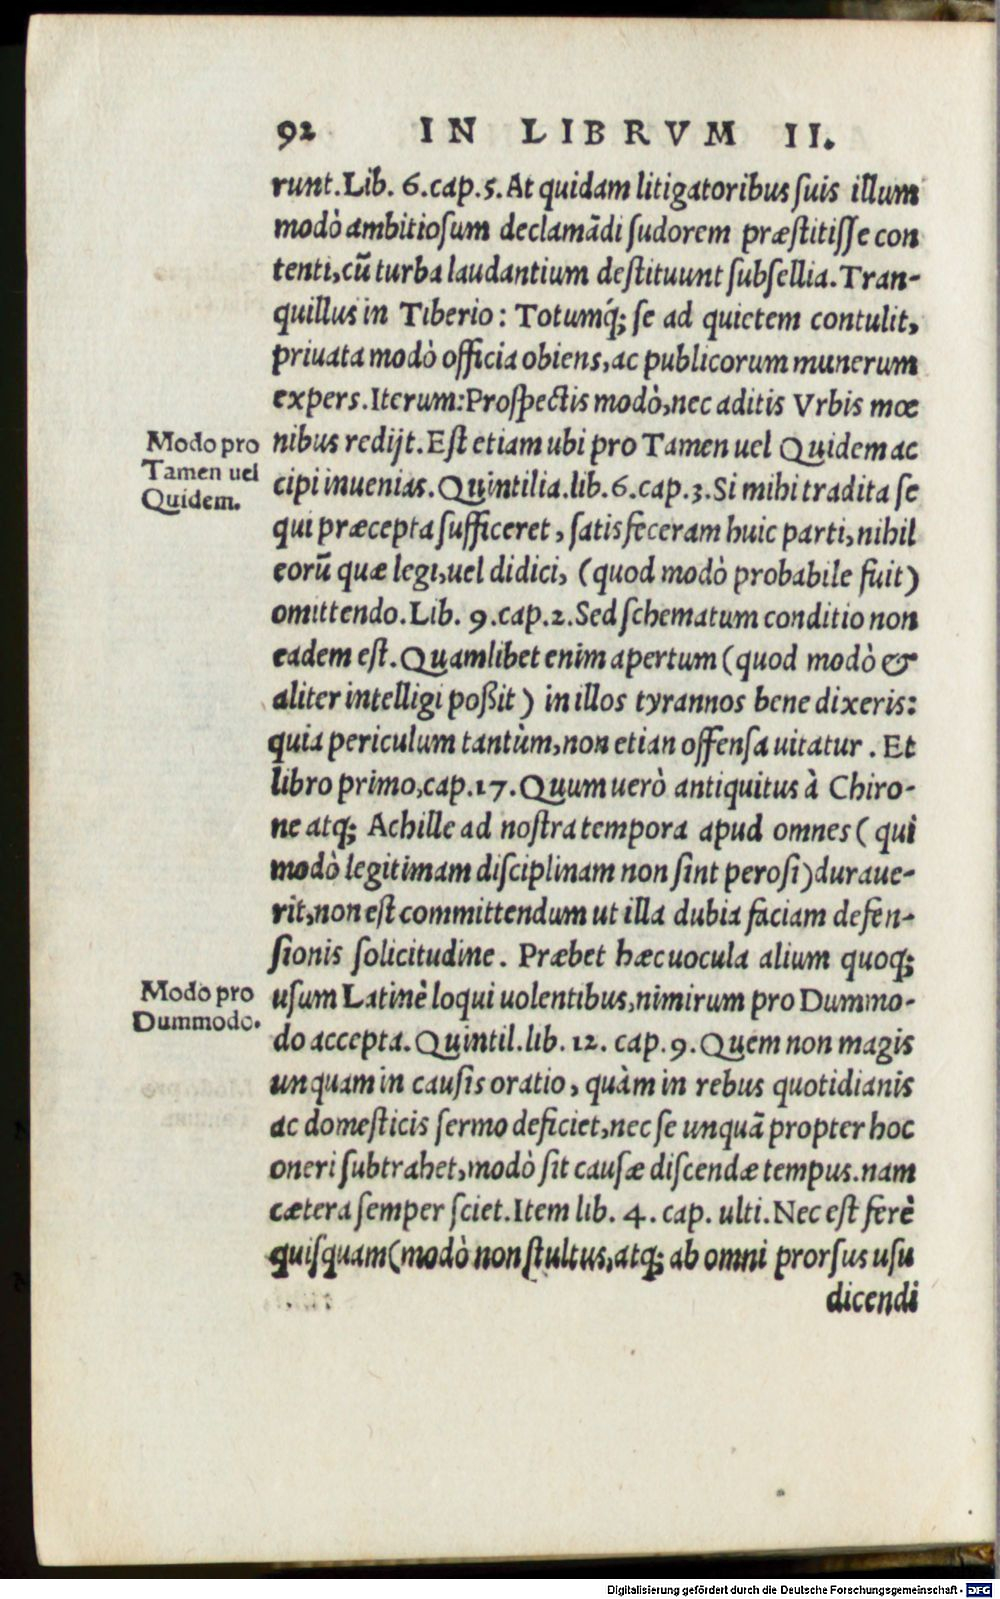 92 IN LIBRVM II.
runt. Lib. 6. cap. 5. At quidam litigatoribus suis illum
modò ambitiosum declamādi sudorem præstitisse con
tenti, cū turba laudantium destituunt subsellia. Tran-
quillus in Tiberio: Totumq́; se ad quietem contulit,
priuata modò officia obiens, ac publicorum munerum
expers. Iterum: Prospectis modò, nec aditis Vrbis mœ
Modo pro
Tamen uel
Quidem.
nibus redijt. Est etiam ubi pro Tamen uel Quidem ac
cipi inuenias. Quintilia. lib. 6. cap. 3. Si mihi tradita se
qui præcepta sufficeret, satisfeceram huic parti, nihil
eorū quæ legi, uel didici, (quod modò probabile fuit)
omittendo. Lib. 9. cap. 2. Sed schematum conditio non
eadem est. Quamlibet enim apertum (quod modò &
aliter intelligi poßit) in illos tyrannos bene dixeris:
quia periculum tantùm, non etian offensa uitatur. Et
libro primo, cap. 17. Quum uerò antiquitus à Chiro-
ne atq; Achille ad nostra tempora apud omnes (qui
modò legitimam disciplinam non sint perosi) duraue-
rit, non est committendum ut illa dubia faciam defen-
sionis solicitudine. Præbet hæc uocula alium quoq;
Modo pro
Dummodo.
usum Latinè loqui uolentibus, nimirum pro Dummo-
do accepta. Quintil. lib. 12. cap. 9. Quem non magis
unquam in causis oratio, quàm in rebus quotidianis
ac domesticis sermo deficiet, nec se unquā propter hoc
oneri subtrahet, modò sit causæ discendæ tempus. nam
cætera semper sciet. Item lib. 4. cap. ulti. Nec est ferè
quisquam (modò non stultus, atq; ab omni prorsus usu
dicendi
Digitalisierung gefördert durch die Deutsche Forschungsgemeinschaft - DFG